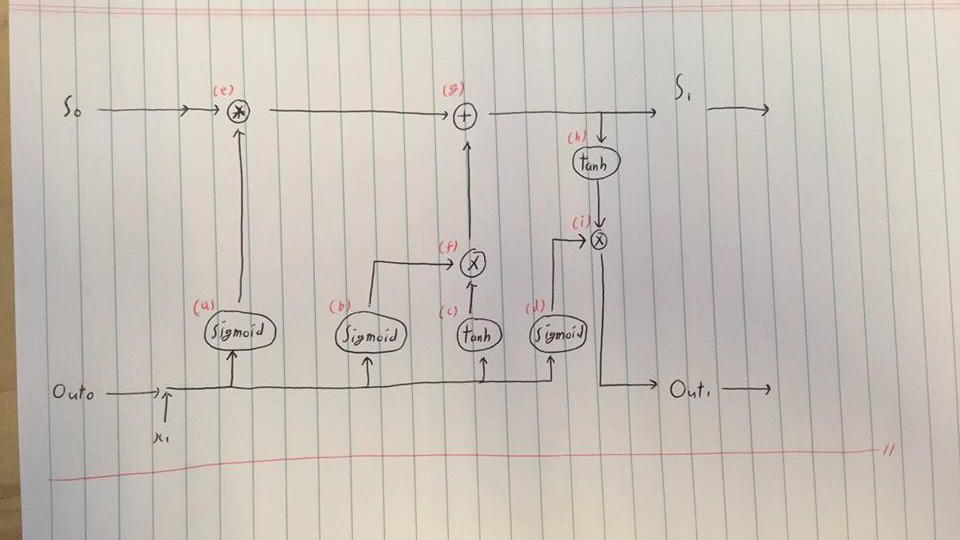 (e)
(g)
S₀
*
+
S₁
(h)
tanh
(i)
x
(f)
x
(a)
(b)
(c)
(d)
Sigmoid
Sigmoid
tanh
Sigmoid
Out₀
Out₁
x₁